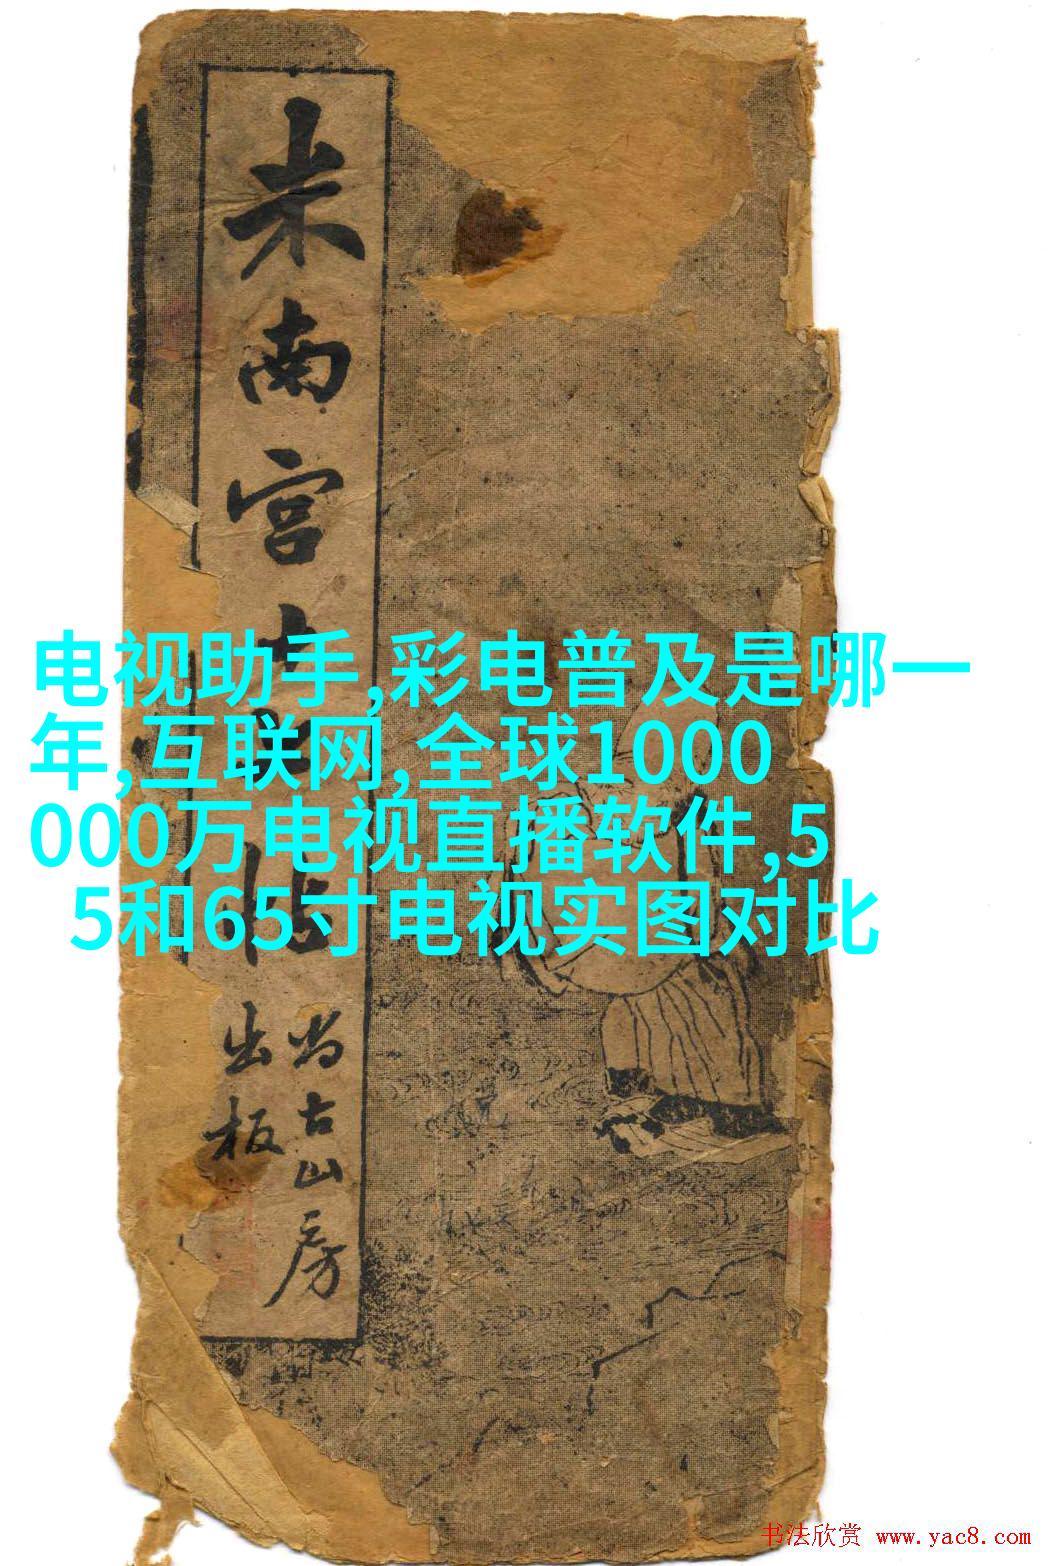 米南宫
尚古山房
出板
电视助手,彩电普及是哪一
年,互联网,全球1000
000万电视直播软件,5
5和65寸电视实图对比
书法欣赏 www.yac8.com